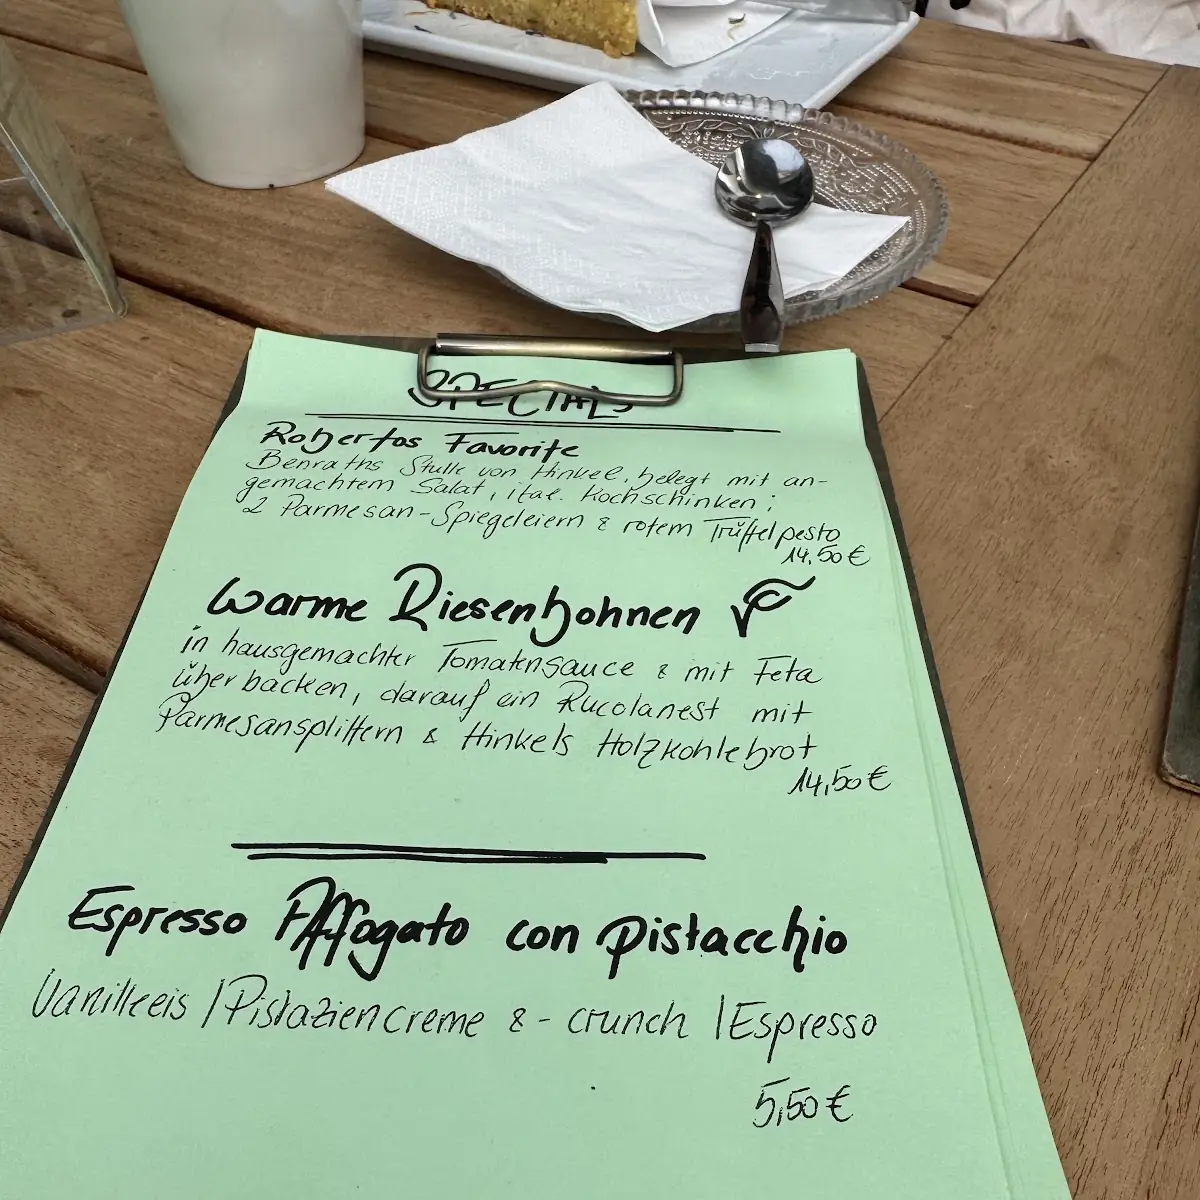 SPECIALS
Robertos Favorite
Benraths Stulle von Hinkel, belegt mit an-
gemachtem Salat, ital. Kochschinken;
2 Parmesan-Spiegeleiern & rotem Trüffelpesto
14,50€
Warme Riesenbohnen
in hausgemachter Tomatensauce & mit Feta
überbacken, darauf ein Rucolanest mit
Parmesansplittern & Hinkels Holzkohlebrot
14,50€
Espresso Affogato con pistacchio
Vanilleeis | Pistaziencreme & -crunch | Espresso
5,50€